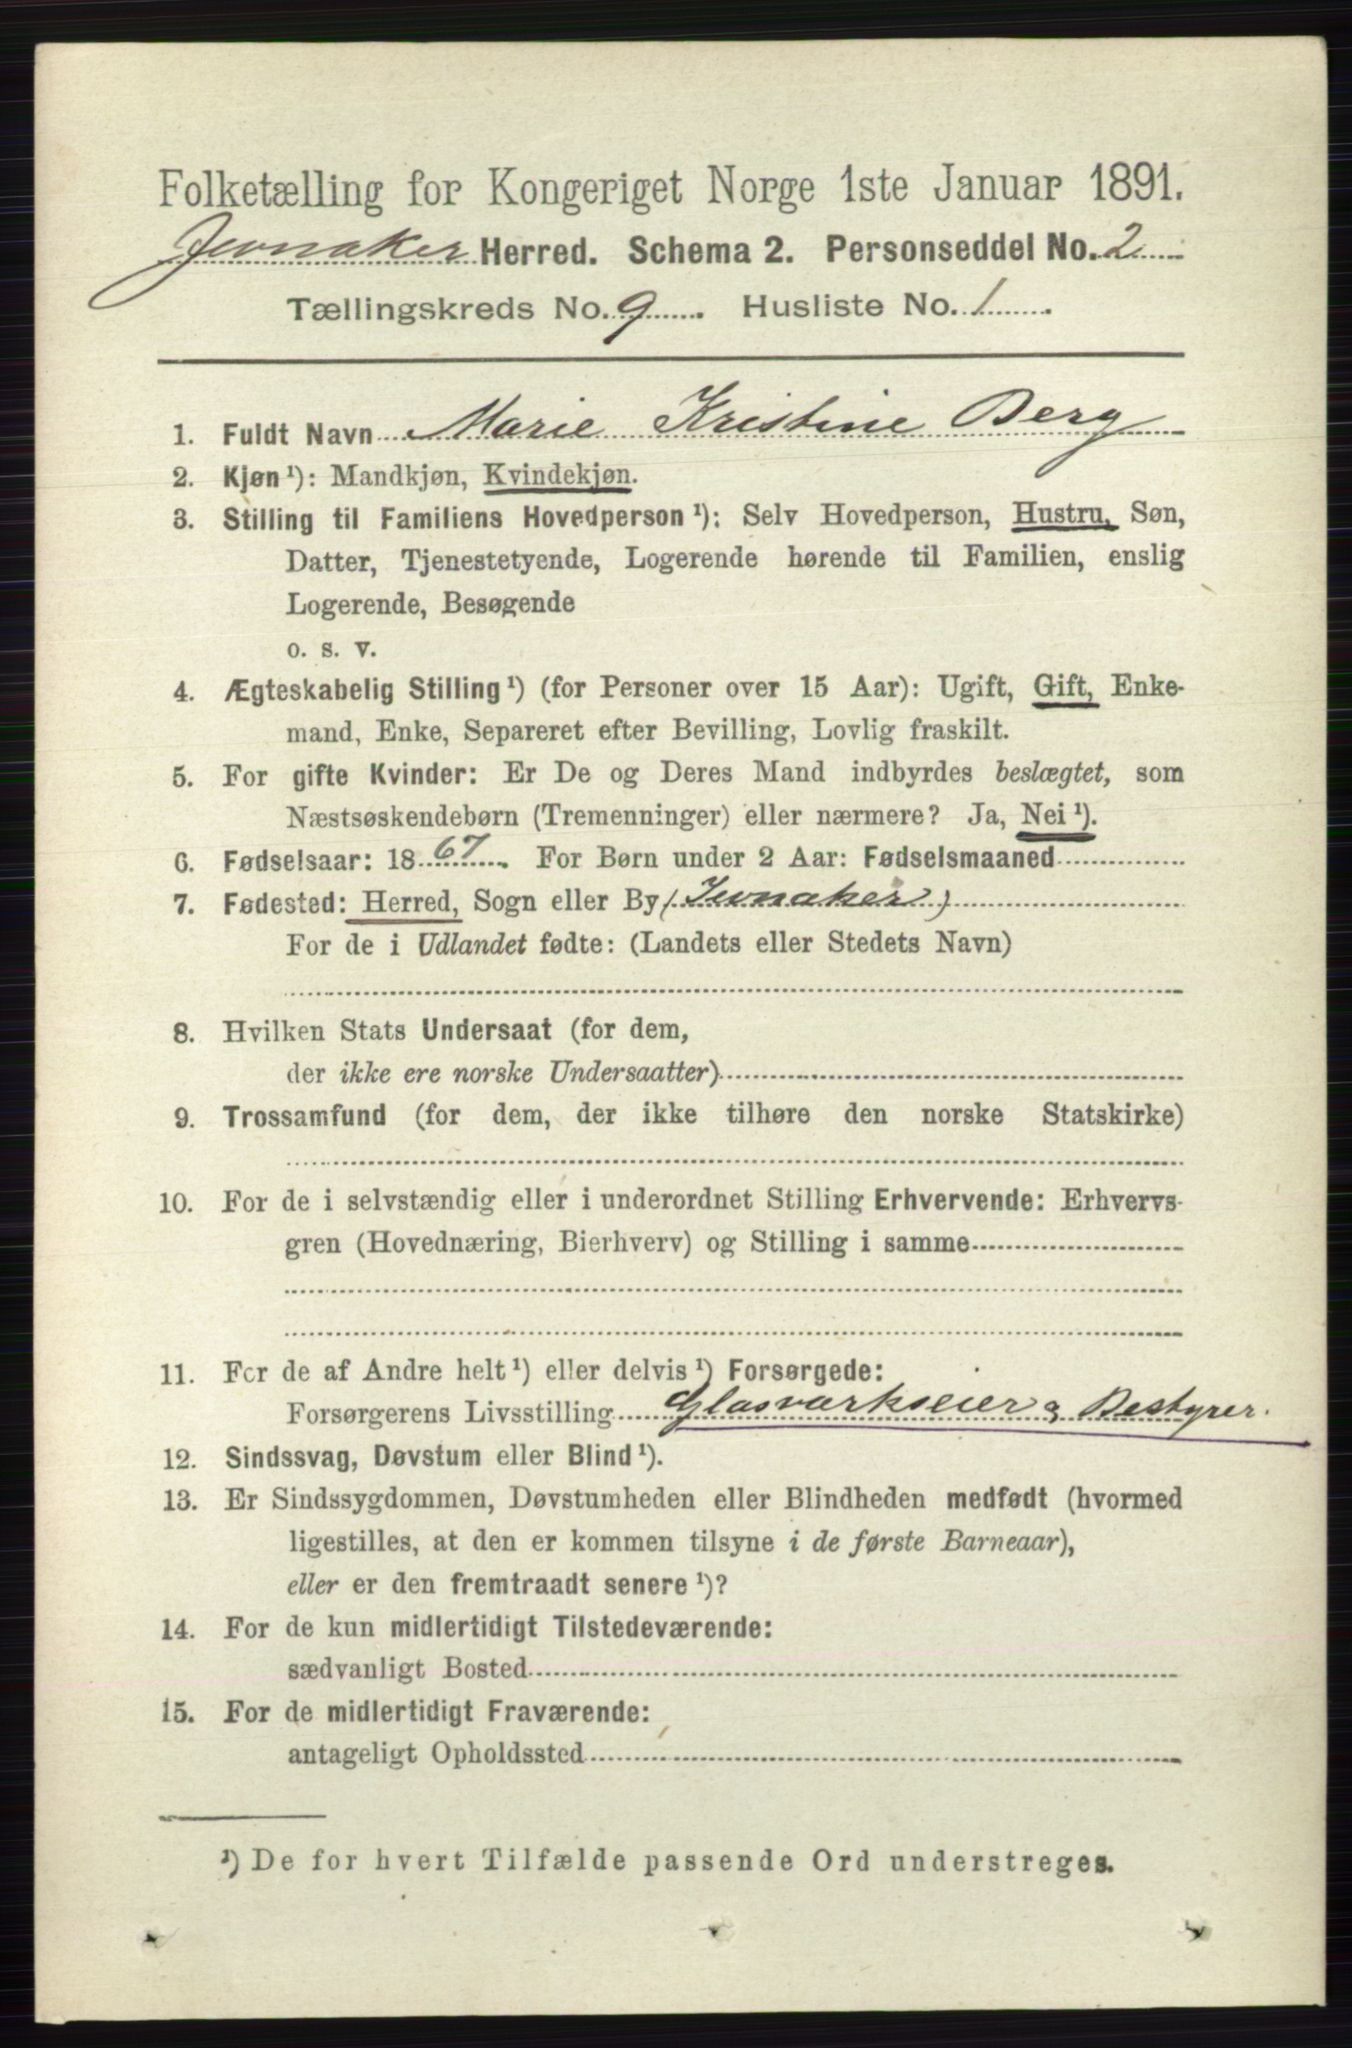 Folketælling for Kongeriget Norge 1ste Januar 1891.
Jevnaker Herred. Schema 2. Personseddel No. 2
Tællingskreds No. 9. Husliste No. 1.
1. Fuldt Navn Marie Kristine Berg
2. Kjøn¹): Mandkjøn, Kvindekjøn.
3. Stilling til Familiens Hovedperson¹): Selv Hovedperson, Hustru, Søn,
Datter, Tjenestetyende, Logerende hørende til Familien, enslig
Logerende, Besøgende
o. s. v.
4. Ægteskabelig Stilling¹) (for Personer over 15 Aar): Ugift, Gift, Enke-
mand, Enke, Separeret efter Bevilling, Lovlig fraskilt.
5. For gifte Kvinder: Er De og Deres Mand indbyrdes beslægtet, som
Næstsøskendebørn (Tremenninger) eller nærmere? Ja, Nei¹).
6. Fødselsaar: 1867. For Børn under 2 Aar: Fødselsmaaned
7. Fødested: Herred, Sogn eller By (Jevnaker)
For de i Udlandet fødte: (Landets eller Stedets Navn)
8. Hvilken Stats Undersaat (for dem,
der ikke ere norske Undersaatter)
9. Trossamfund (for dem, der ikke tilhøre den norske Statskirke)
10. For de i selvstændig eller i underordnet Stilling Erhvervende: Erhvervs-
gren (Hovednæring, Bierhverv) og Stilling i samme
11. For de af Andre helt¹) eller delvis¹) Forsørgede:
Forsørgerens Livsstilling Glasværkseier & Bestyrer.
12. Sindssvag, Døvstum eller Blind¹).
13. Er Sindssygdommen, Døvstumheden eller Blindheden medfødt (hvormed
ligestilles, at den er kommen tilsyne i de første Barneaar),
eller er den fremtraadt senere¹)?
14. For de kun midlertidigt Tilstedeværende:
sædvanligt Bosted
15. For de midlertidigt Fraværende:
antageligt Opholdssted
¹) De for hvert Tilfælde passende Ord understreges.